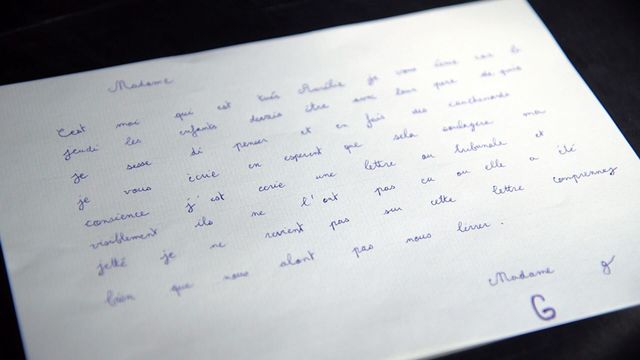 Madame
C'est moi qui est tués Amélie je vous écris car le
jeudi les enfants devais être avec leur père de puis
je sesse di penser et en fais des conchemards
je vous écrie en esperent que sela soulagera ma
conscience j'est ecrie une lettre au tribunale et
visiblement ils ne l'ont pas eu ou elle a été
jetté je ne revient pas sur cette lettre comprennez
bien que nous alont pas nous livrer.
Madame g
G